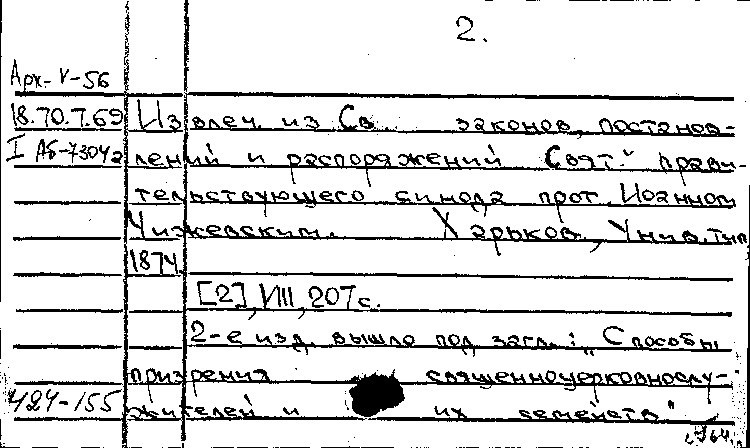 2.
Арх-V-56
18.70.7.69 Извлеч. из Св. законов, постанов-
I Аб-7304а лений и распоряжений Свят. прави-
тельствующего синода прот. Иоанном
Чижевским. Харьков, Унив. тип,
1874.
[2], VIII, 207 с.
2-е изд. вышло под загл.: „Способы
призрения священноцерковнослу-
424-155 жителей и их семейств"